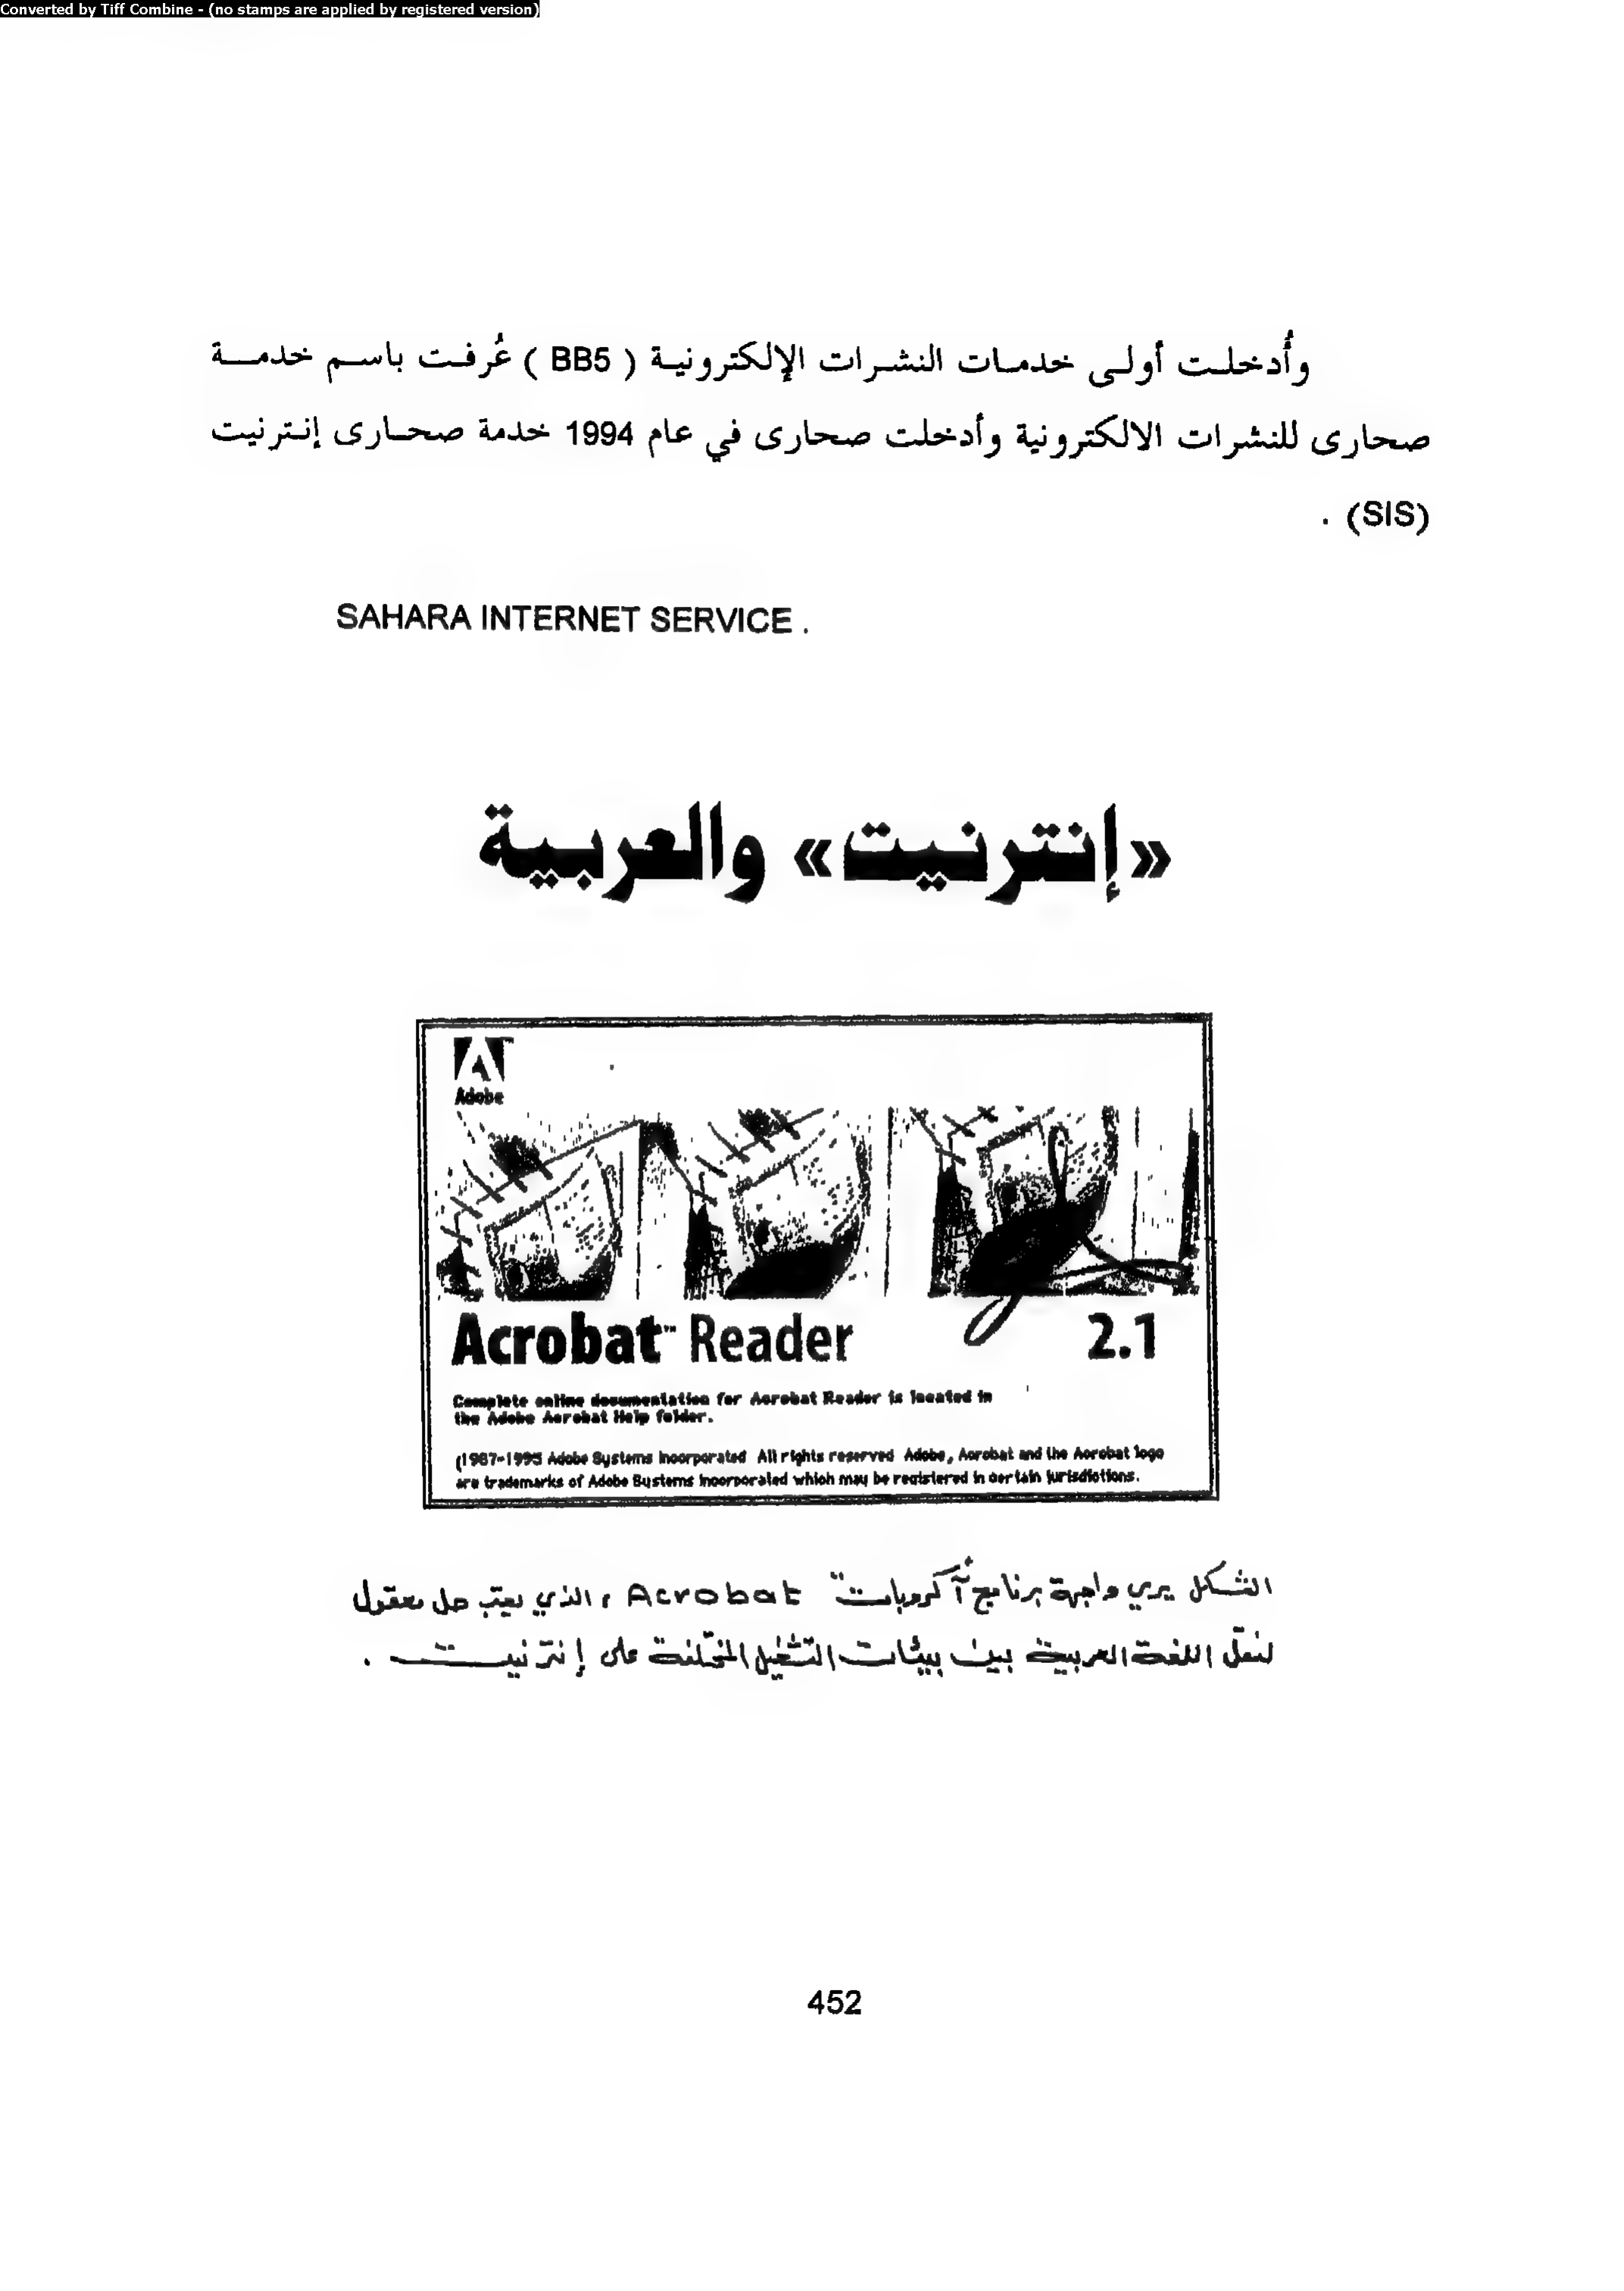 Converted by Tiff Combine - (no stamps are applied by registered version)
وأُدخلت أولى خدمات النشرات الإلكترونية ( BB5 ) عُرفت باسم خدمة
صحارى للنشرات الالكترونية وأدخلت صحارى في عام 1994 خدمة صحارى إنترنيت
(SIS) .
SAHARA INTERNET SERVICE .
«إنترنيت» والعربية
Adobe
Acrobat™ Reader 2.1
Complete online documentation for Acrobat Reader is located in
the Adobe Acrobat Help folder.
(1987-1995 Adobe Systems Incorporated All rights reserved Adobe, Acrobat and the Acrobat logo
are trademarks of Adobe Systems Incorporated which may be registered in certain jurisdictions.
الشكل يري واجهة برنامج "آكروبات" Acrobat ، الذي يعتبر حل معقول
لنقل اللغة العربية بين بيئات التشغيل المختلفة على إنترنيت .
452